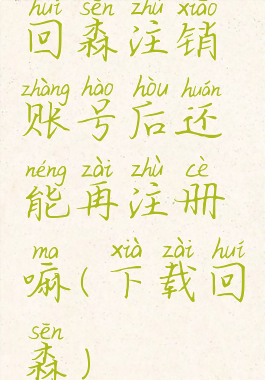 huí sēn zhù xiāo
回森注销
zhàng hào hòu huán
账号后还
néng zài zhù cè
能再注册
ma xià zài huí
嘛(下载回
sēn
森)